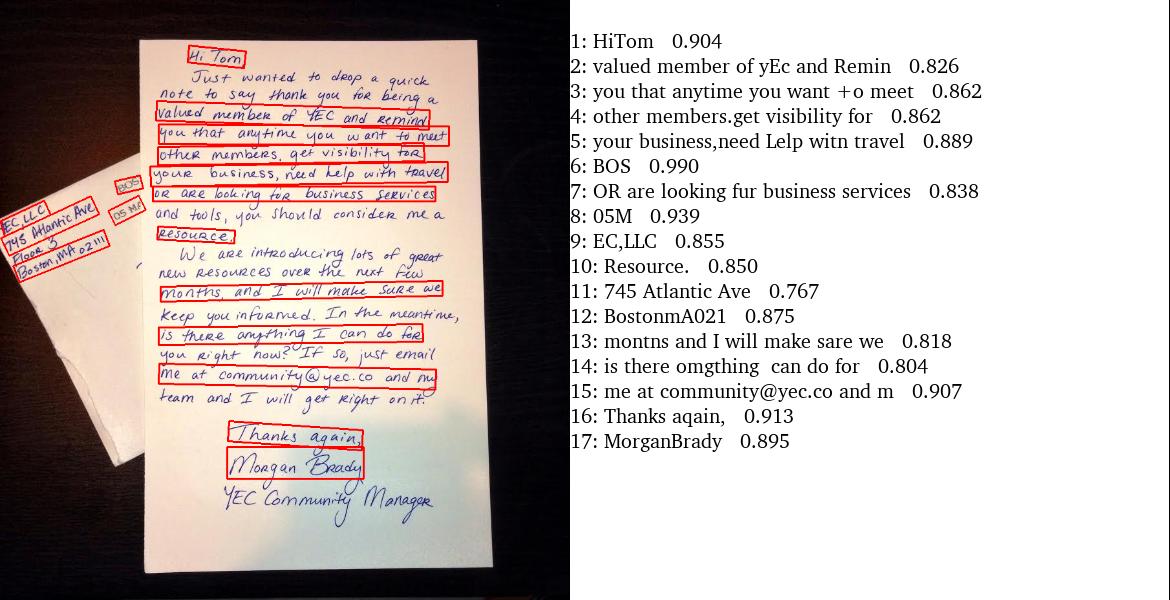 Hi Tom
Just wanted to drop a quick
note to say thank you for being a
valued member of YEC and remind
you that anytime you want to meet
other members, get visibility for
your business, need help with travel
or are looking for business services
and tools, you should consider me a
resource.
We are introducing lots of great
new resources over the next few
months, and I will make sure we
keep you informed. In the meantime,
is there anything I can do for
you right now? If so, just email
me at community@yec.co and my
team and I will get right on it.
Thanks again,
Morgan Brady
YEC Community Manager
BOS
05 MA
EC, LLC
745 Atlantic Ave
Floor 3
Boston, MA 02111
1: HiTom 0.904
2: valued member of yEc and Remin 0.826
3: you that anytime you want +o meet 0.862
4: other members.get visibility for 0.862
5: your business,need Lelp witn travel 0.889
6: BOS 0.990
7: OR are looking fur business services 0.838
8: 05M 0.939
9: EC,LLC 0.855
10: Resource. 0.850
11: 745 Atlantic Ave 0.767
12: BostonmA021 0.875
13: montns and I will make sare we 0.818
14: is there omgthing can do for 0.804
15: me at community@yec.co and m 0.907
16: Thanks aqain, 0.913
17: MorganBrady 0.895